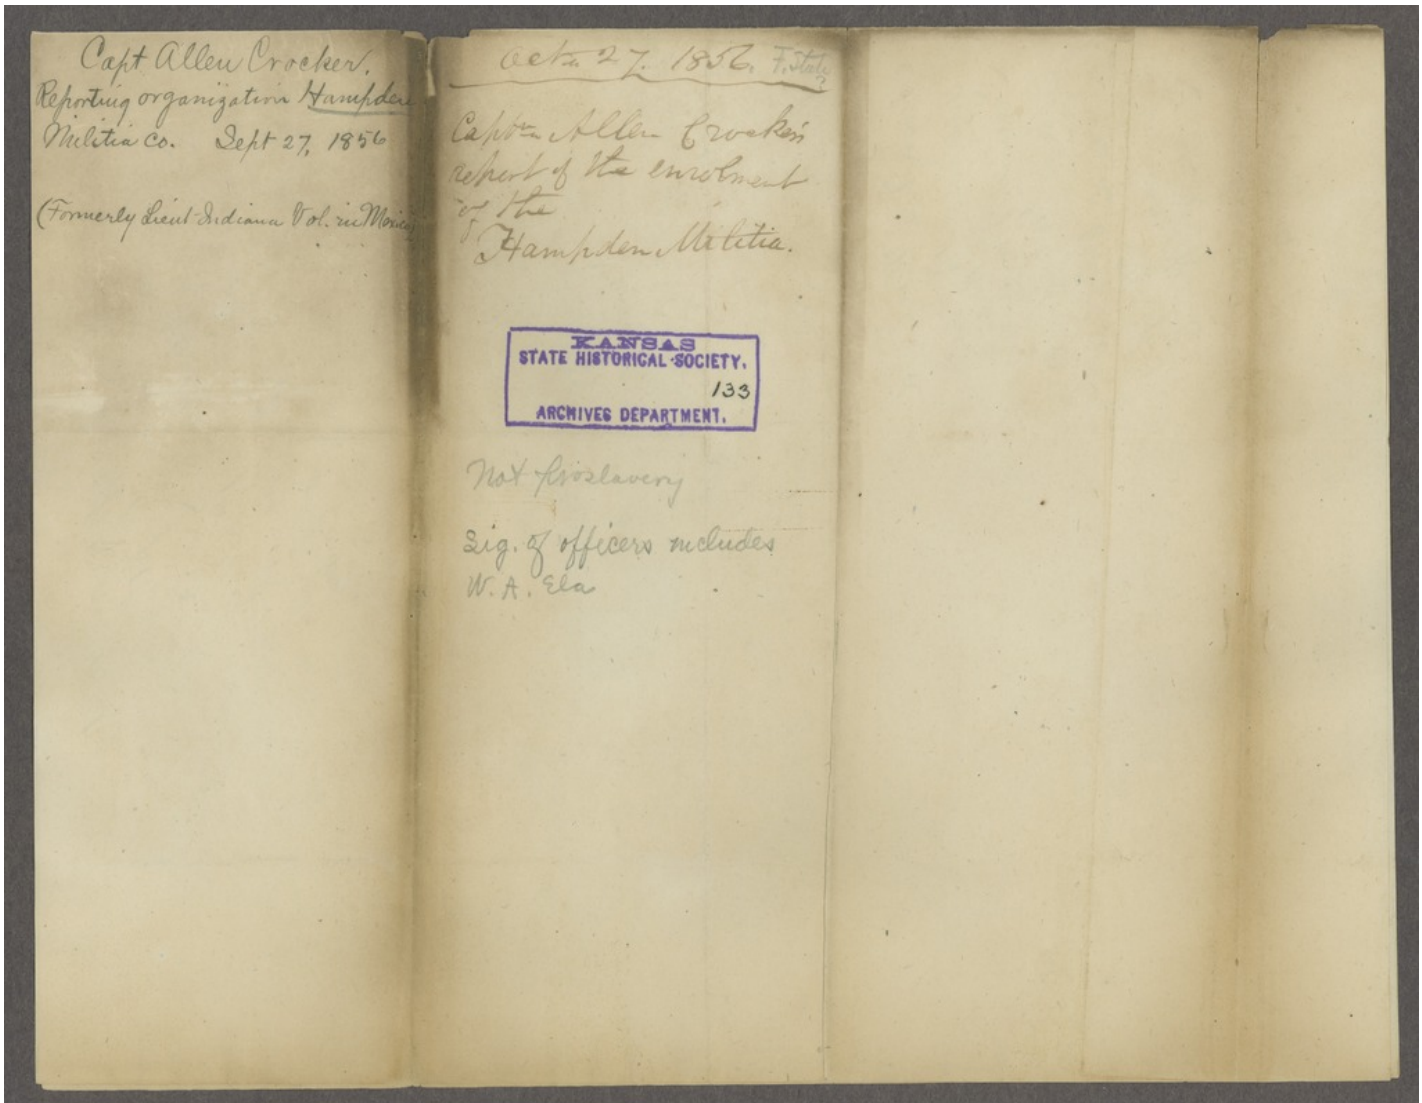 Capt Allen Crocker.
Reporting organization Hampden
Militia Co. Sept 27, 1856
(Formerly Lieut Indiana Vol. in Mexico)
Octr 27, 1856. F. State
Captn Allen Crocker's
report of the enrolment
of the
Hampden Militia.
KANSAS
STATE HISTORICAL SOCIETY.
133
ARCHIVES DEPARTMENT.
Not Proslavery
Sig. of officers includes
W. A. Ela